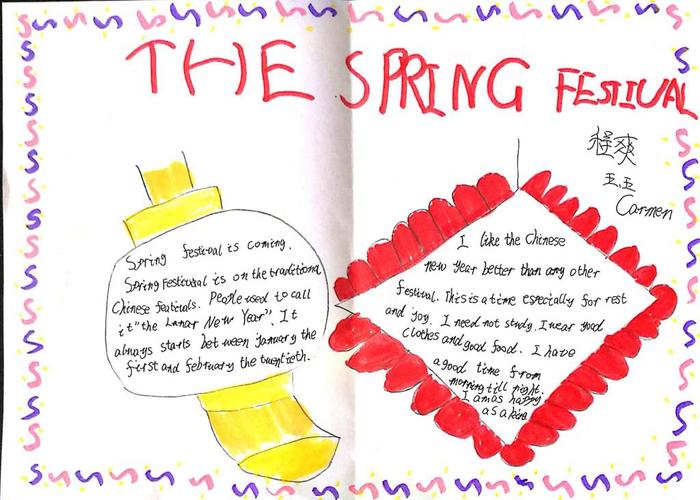 THE SPRING FESTIVAL
程爽
五.五
Carmen
Spring festival is coming.
Spring Festiusual is on the traditional
Chinese featicals. People used to call
it "the Lanar New Year". It
always starts between january the
first and february the twentieth.
I like the Chinese
new year better than any other
festival. This is a time especially for rest
and joy. I need not study. I wear good
clothes and good food. I have
a good time from
morning till night.
I am as happy
as a king